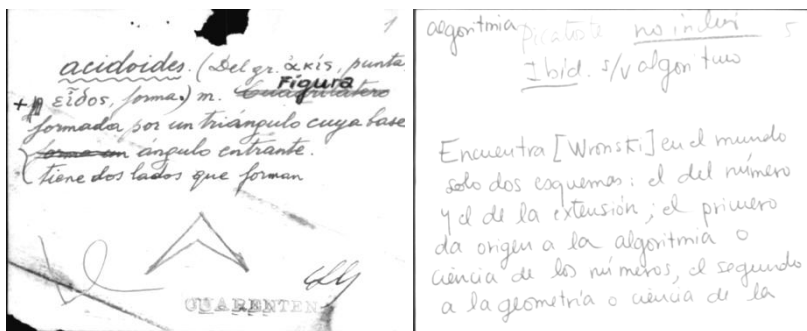 1
acidoides. (Del gr. ἀκίς, punta
+ εἶδος, forma.) m. Cuadrilátero Figura
formada por un triángulo cuya base
forma un angulo entrante.
tiene dos lados que forman
CUARENTEN
algoritmia Picatoste no incluí 5
Ibid. s/v algoritmo
Encuentra [Wronski] en el mundo
solo dos esquemas: el del número
y el de la extensión; el primero
da origen a la algoritmia o
ciencia de los números, el segundo
a la geometría o ciencia de la